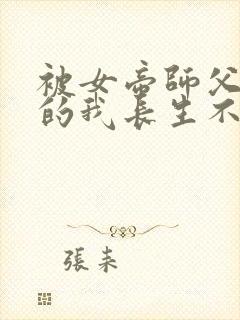 被女帝師父
的我長生不
張耒